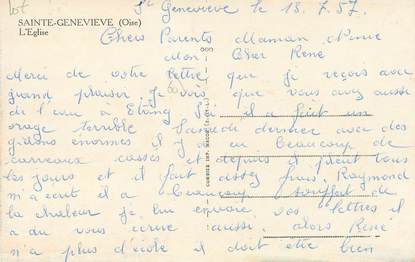 lot
Ste Geneviève le 18.7.57
SAINTE-GENEVIEVE (Oise)
L'Eglise
Chers Parents Maman
Mon Cher René
Merci de votre lettre que je reçois avec
grand plaisir je vois que vous avez aussi
de l'eau à Etaing ici il a fait un
orage terrible Samedi dernier avec des
grêlons énormes il y a eu beaucoup de
carreaux cassés et depuis il pleut tous
les jours et il fait assez frais, Raymond
m'a écrit il a beaucoup souffert de
la chaleur je lui envoie vos lettres il
a du vous écrire aussi. alors René
n'a plus d'école il doit être bien